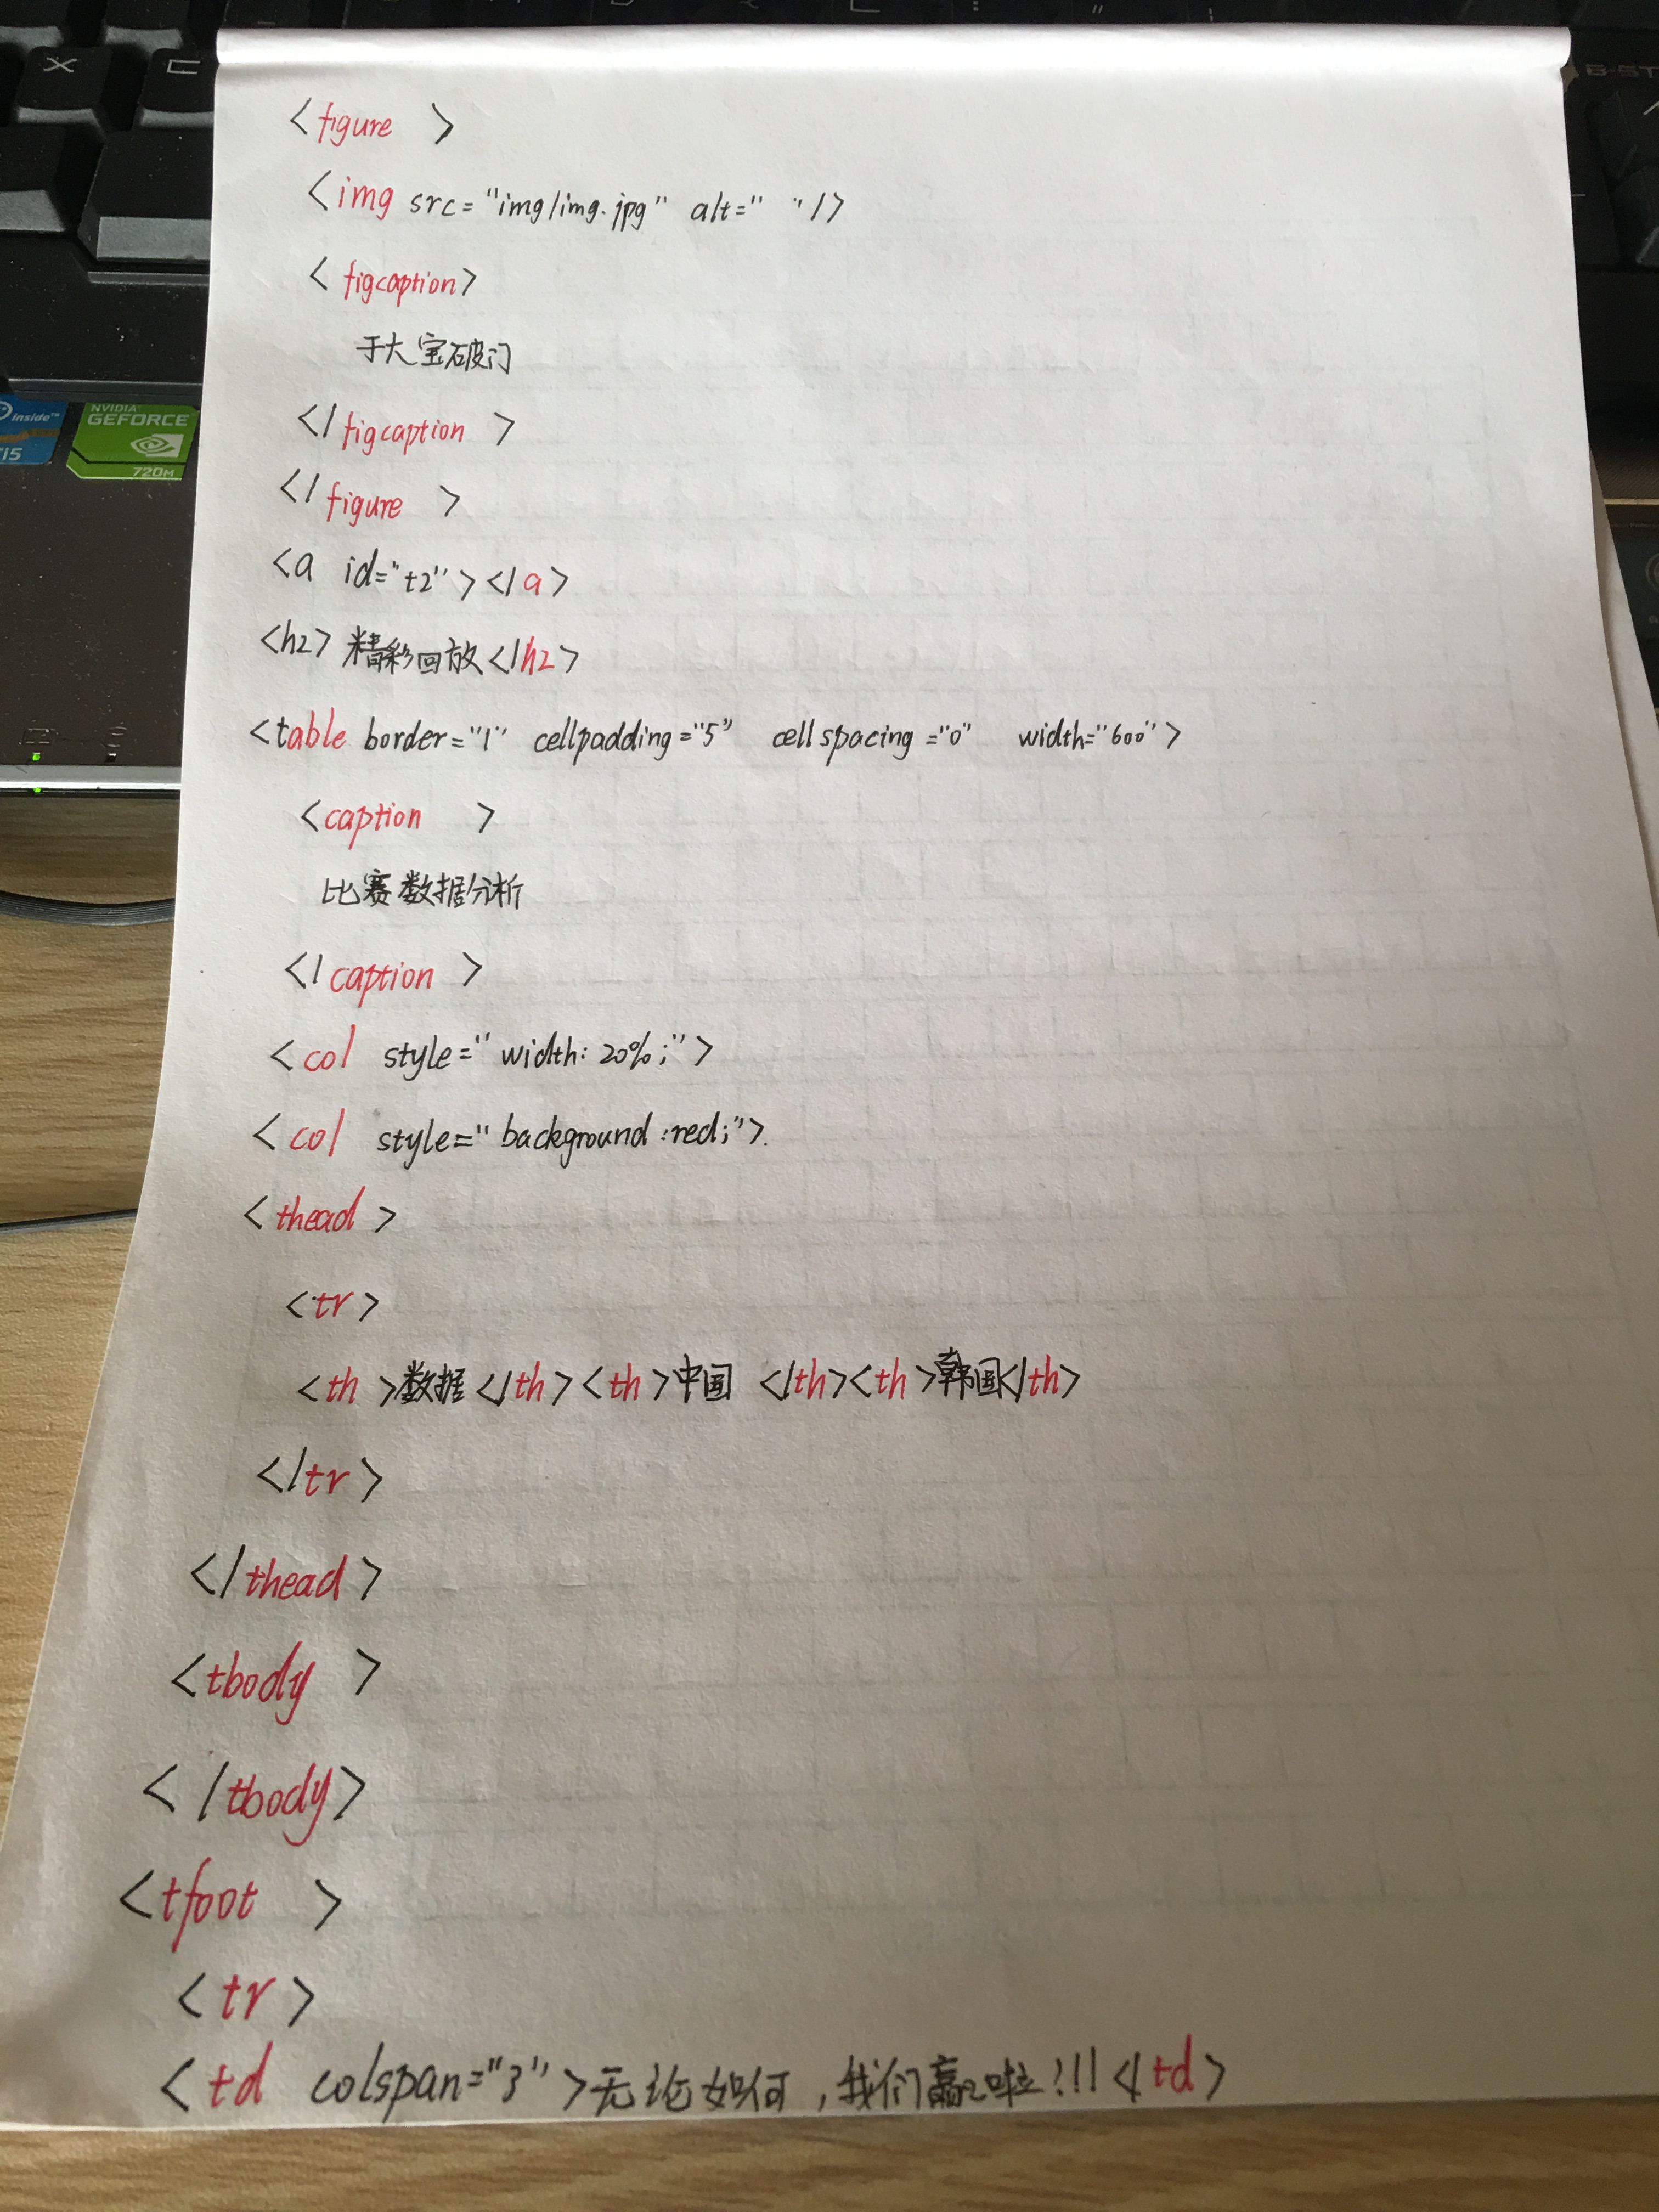 <figure >
<img src="img/img.jpg" alt=" "/>
<figcaption>
于大宝破门
</figcaption >
</figure >
<a id="t2"></a>
<h2>精彩回放</h2>
<table border="1" cellpadding="5" cellspacing="0" width="600">
<caption >
比赛数据分析
</caption >
<col style="width:20%;">
<col style="background:red;">.
<thead>
<tr>
<th >数据</th><th>中国 </th><th>韩国</th>
</tr>
</thead>
<tbody >
</tbody>
<tfoot >
<tr>
<td colspan="3">无论如何,我们赢啦!!!</td>
inside™
i5
NVIDIA
GEFORCE
720M
X
C